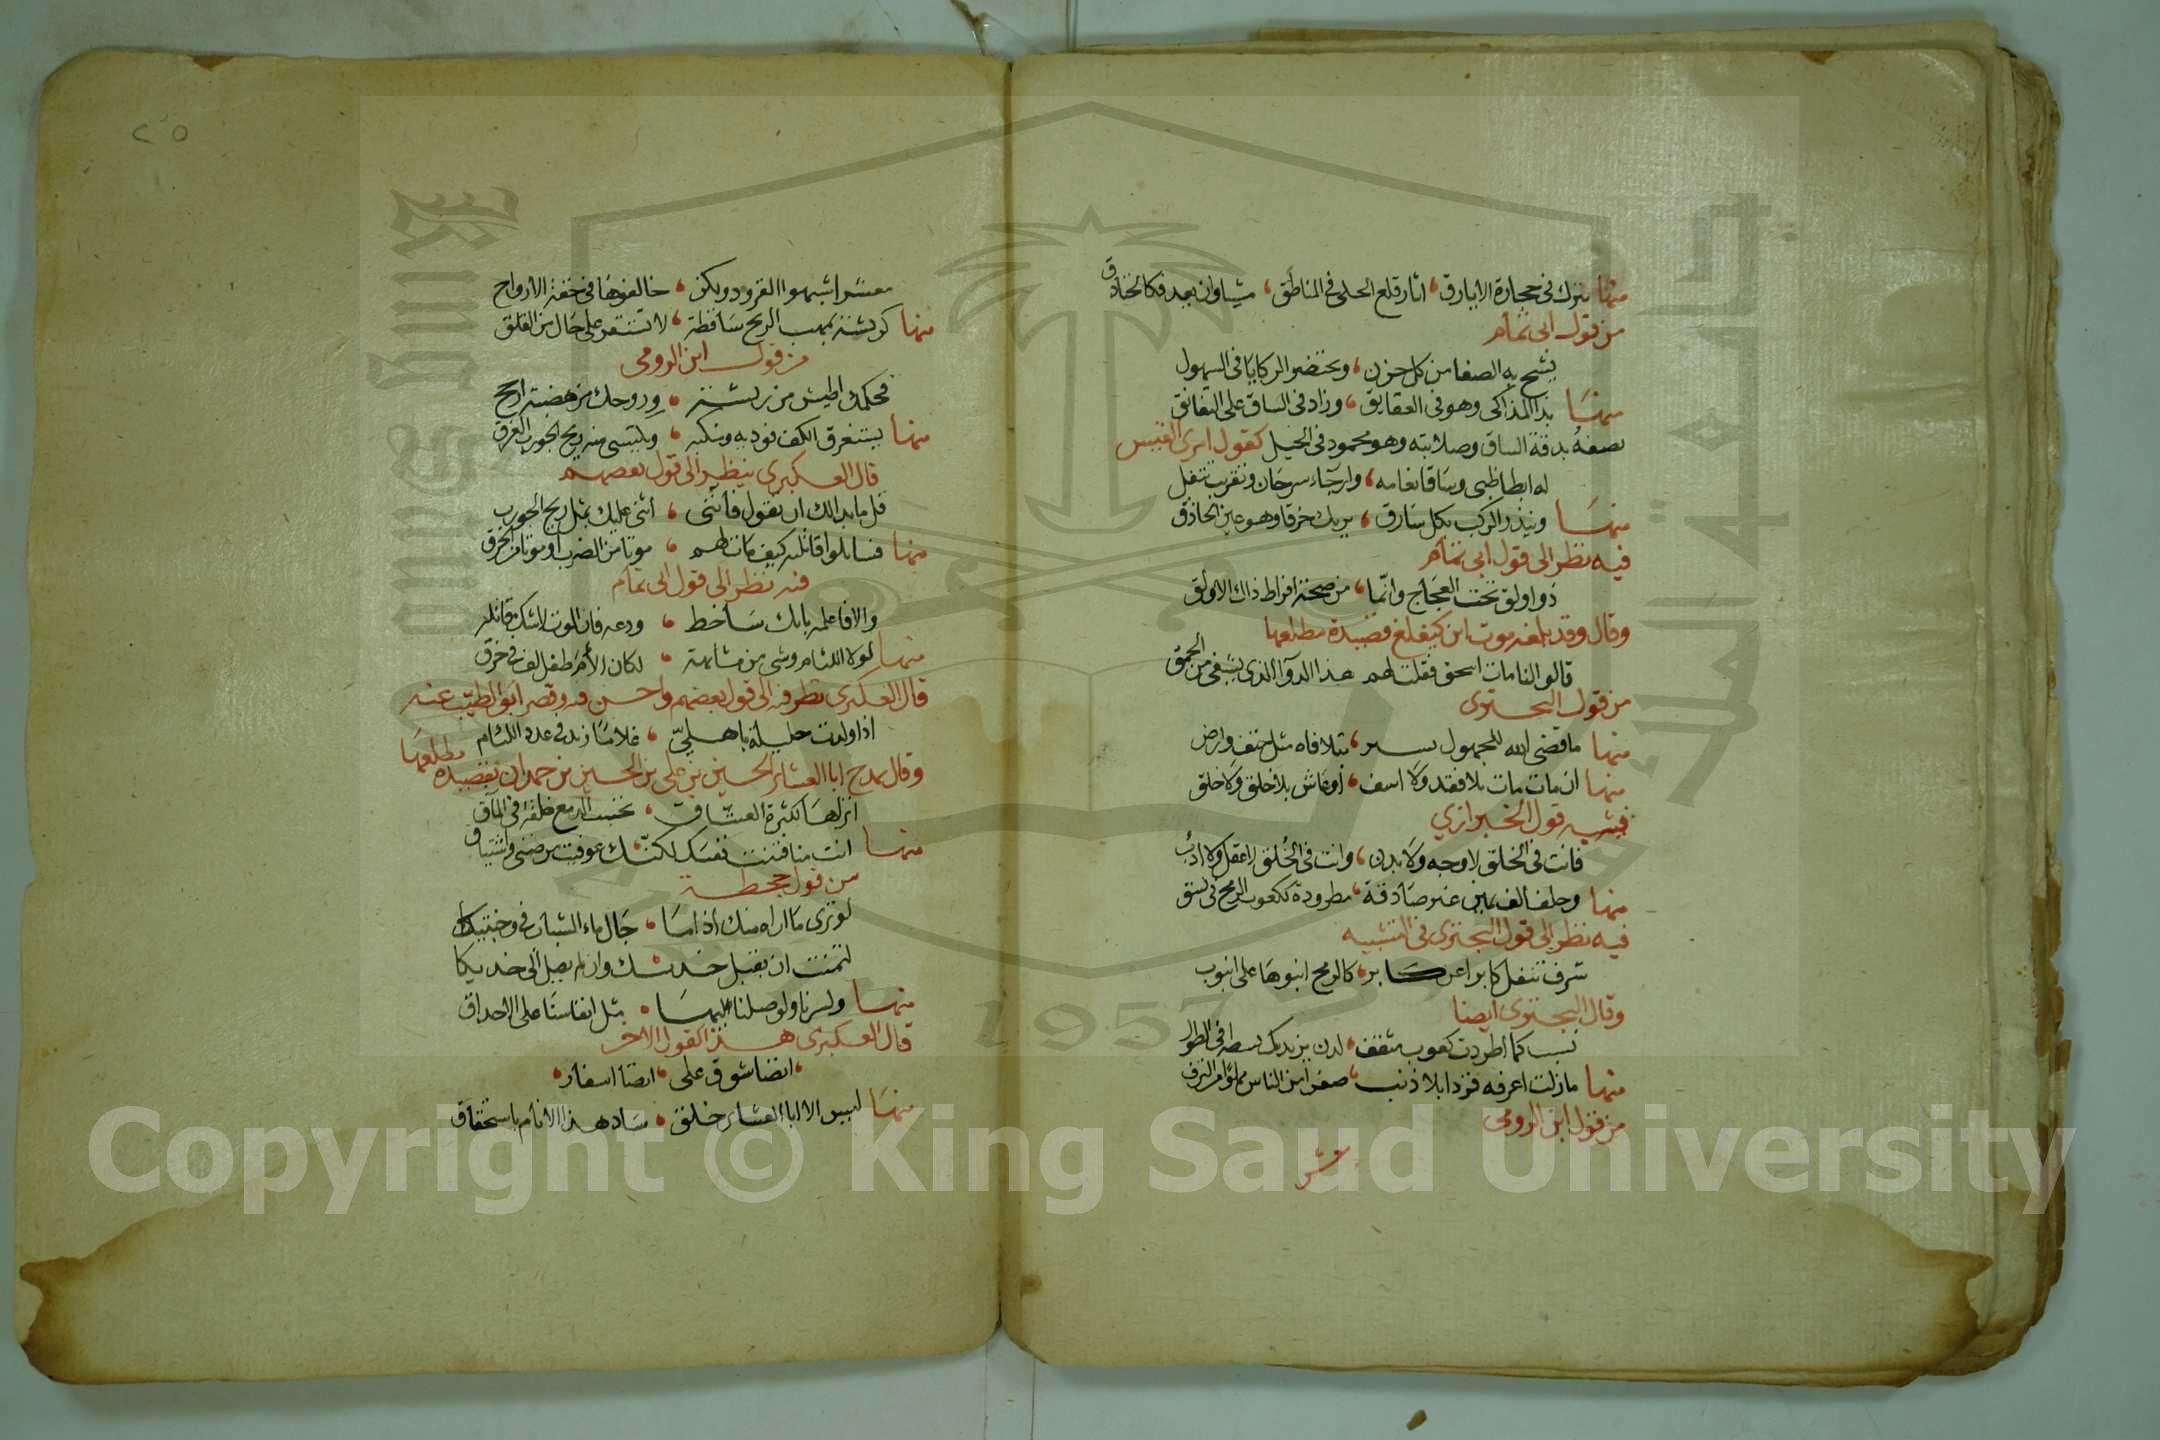 منها يترك في حجارة الابارق، اثار قلع الحلي في المناطق، مشيا وان يعد فكالخنادق
من قول ابي تمام
يشج به الصفا من كل حزن، ويختضر الركايا في السهول
منها بذ المذاكي وهو في العقايق، وزاد في الساق على النقانق
يصفه بدقة الساق وصلابته وهو محمود في الخيل كقول امرئ القيس
له ايطا ظبي وساقا نعامه، وارخاء سرحان وتقريب تتفل
منها وينذر الركب بكل سارق، يريك خرقا وهو عين الحاذق
فيه نظر الى قول ابي تمام
ذو اولق تحت العجاج وانما، من صحة افراط ذاك الاولق
وقال وقد بلغه موت ابن كيغلغ قصيدة مطلعها
قالوا لنا مات اسحق فقلت لهم هذا الدوآ الذي يشفي من الحمق
من قول البحتري
ما قضى الله للجهول بستر، بتلافاه مثل حتف راض
منها ان مات مات بلا فقد ولا اسف، او عاش عاش بلا خلق ولا خلق
فيشبه قول الخبزارزي
فانت في الخلق لا وجه ولا بدن، وانت في الخلق لا عقل ولا ادب
منها وحلف الف يمين غير صادقة، مطرودة ككعوب الرمح في نسق
فيه نظر الى قول البحتري في التشبيه
شرف تنقل كابرا عن كابر، كالرمح انبوبا على انبوب
وقال البحتري ايضا
نسب كما اطردت كعوب مثقف، لدن يزيدك بسطة في الطول
منها ما زلت اعرفه قردا بلا ذنب، صفرا من الناس مملوا من النزق
من قول ابن الرومي
معشر
معشر اشبهوا القرود ولكن، خالفوها في خفة الارواح
منها كريشة بمهب الريح ساقطة، لا تستقر على حال من القلق
من قول ابن الرومي
فحكمك اطيش من ريشة، وروحك من هضبة ارجح
منها يستغرق الكف فوديه ومنكبه، ويكتسي منه ريح الجورب العرق
قال العكبري ينظر الى قول بعضهم
قل ما بدا لك ان تقول فانني، اثني عليك بمثل ريح الجورب
منها فسايلوا قاتليه كيف مات لهم، موتا من الضرب او موتا من الفرق
فيه نظر الى قول ابي تمام
والا فاعلمه بانك ساخط، ودعه فان الموت لا شك قاتله
منها لولا اللئام وشي من مشابهة، لكان الأم طفل لف في خرق
قال العكبري نظر فيه الى قول بعضهم واحسن فيه وقصر ابو الطيب عنه
اذا ولدت حليلة باهلي، غلاما زيد في عدد اللئام
وقال يمدح ابا العشائر الحسين بن علي بن الحسين بن حمدان بقصيدة مطلعها
اتراها لكثرة العشاق، تحسب الدمع خلقة في المآق
منها انت منا فتنت نفسك لكنك، عوفيت من ضنى واشتياق
من قول جحظة
لو ترى ما اراه منك اذا ما، جال ماء الشباب في وجنتيكا
لتمنيت ان تقبل خديك وان لم يصل الى خديكا
منها ولسرنا ولو وصلنا اليها، مثل انفاسنا على الارماق
قال العكبري هذا كقول الاخر
انضا شوق على، انضا اسفار
منها ليس الا ابا العشائر خلق، ساد هذا الانام باستحقاق
٢٥
1957
Copyright © King Saud University